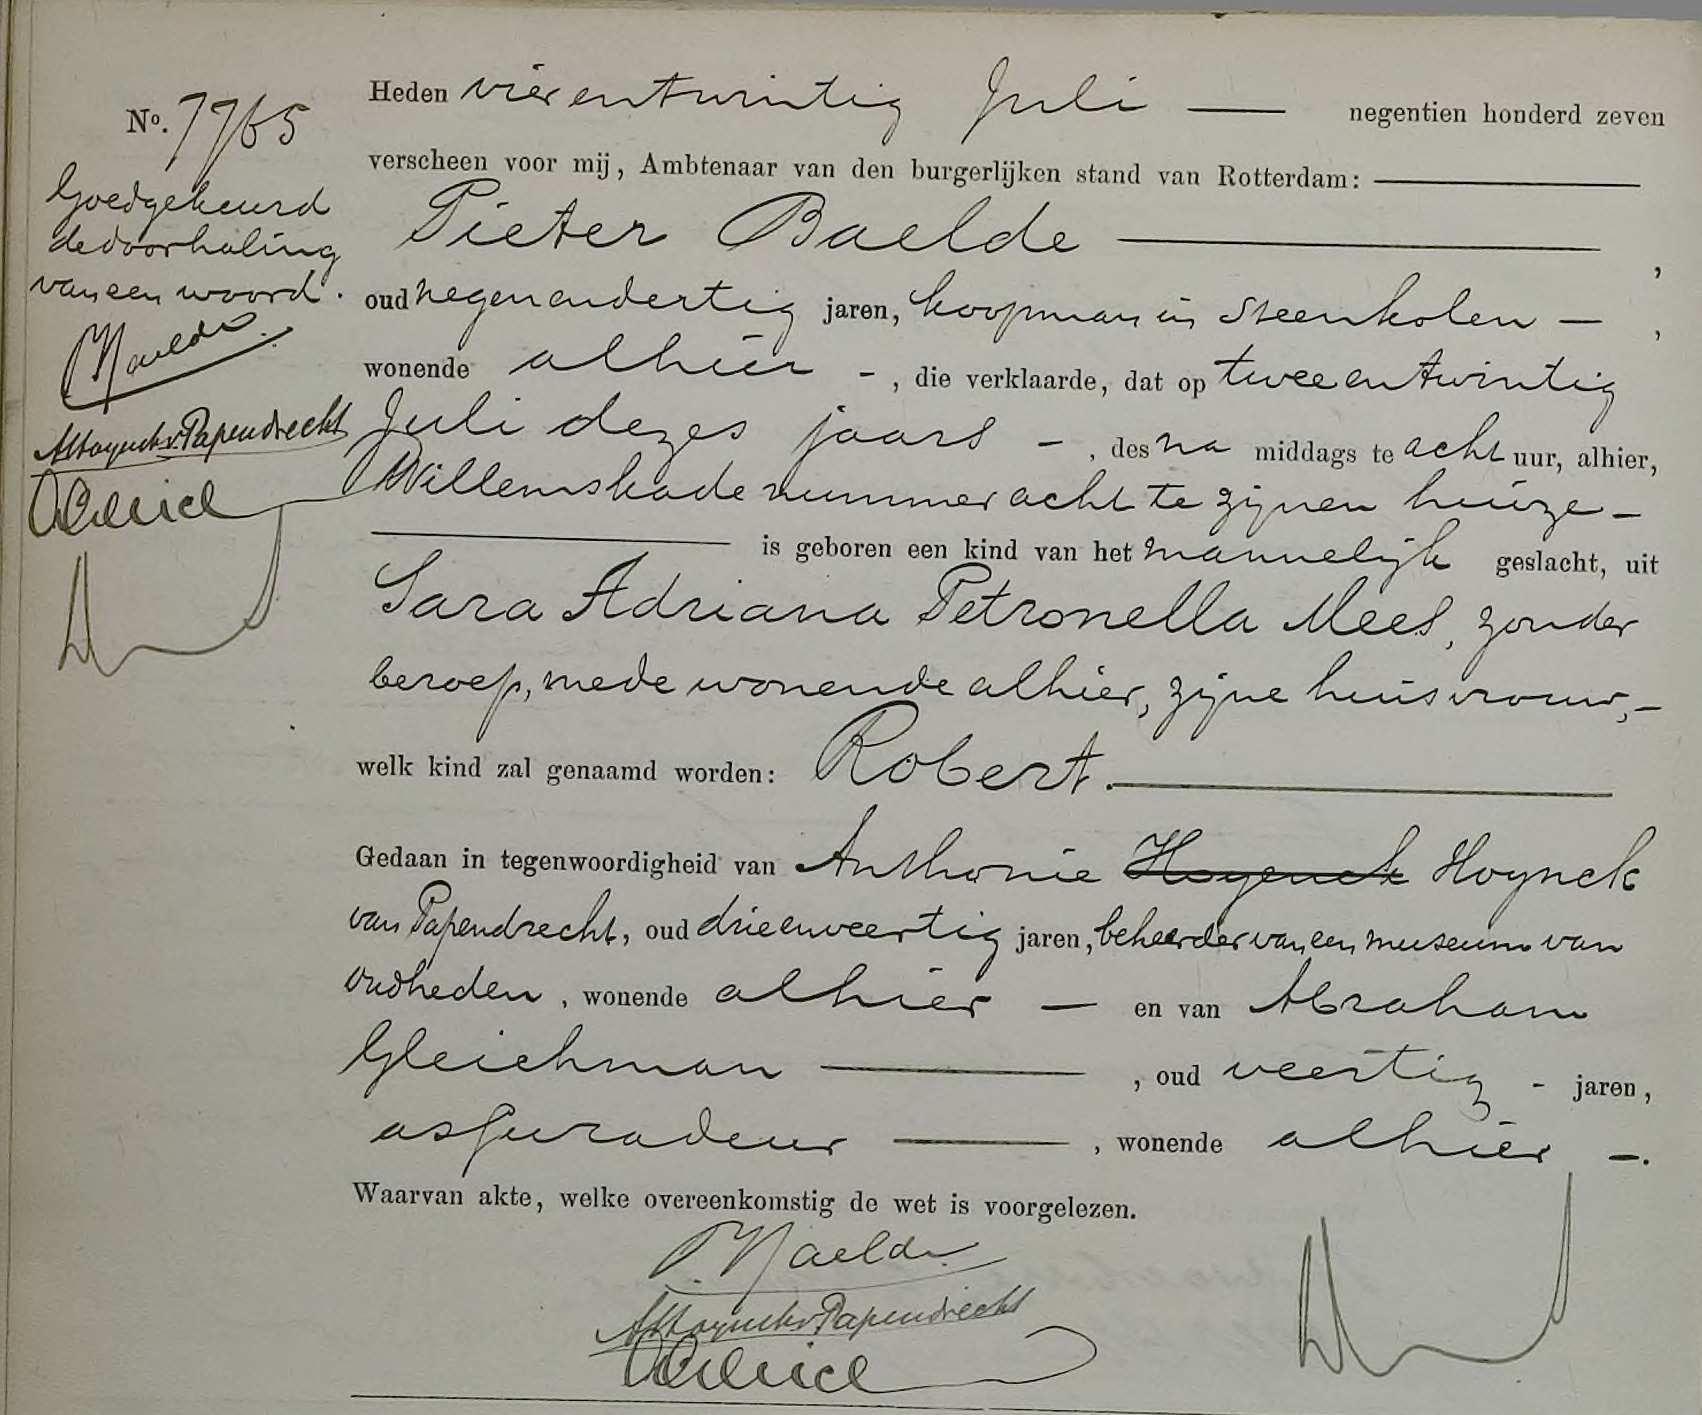 No. 7765
Goedgekeurd
de doorhaling
van een woord.
PBaelde
AHoynckvPapendrecht
Heden vier en twintig Juli — negentien honderd zeven
verscheen voor mij, Ambtenaar van den burgerlijken stand van Rotterdam: —
Pieter Baelde — ,
oud negen en dertig jaren, koopman in steenkolen — ,
wonende alhier - , die verklaarde, dat op twee en twintig
Juli dezes jaars - , des na middags te acht uur, alhier,
Willemskade nummer acht te zijnen huize -
— is geboren een kind van het mannelijk geslacht, uit
Sara Adriana Petronella Mees, zonder
beroep, mede wonende alhier, zijne huisvrouw, -
welk kind zal genaamd worden: Robert. —
Gedaan in tegenwoordigheid van Anthonie Hoyenck Hoynck
van Papendrecht, oud drie en veertig jaren, beheerder van een museum van
oudheden, wonende alhier — en van Abraham
Gleichman — , oud veertig - jaren,
assuradeur — , wonende alhier -.
Waarvan akte, welke overeenkomstig de wet is voorgelezen.
PBaelde
AHoynckvPapendrecht